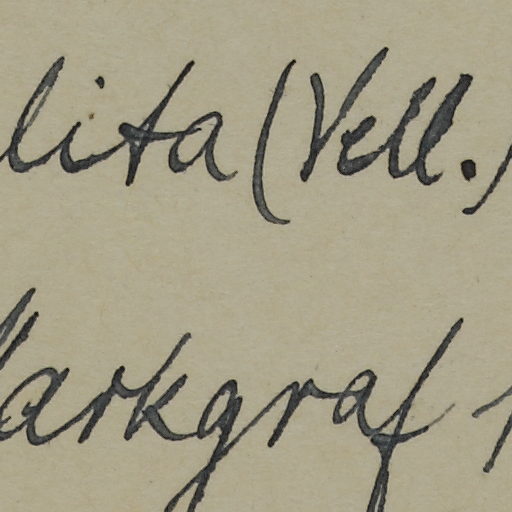 lita (Vell.)
Markgraf 1